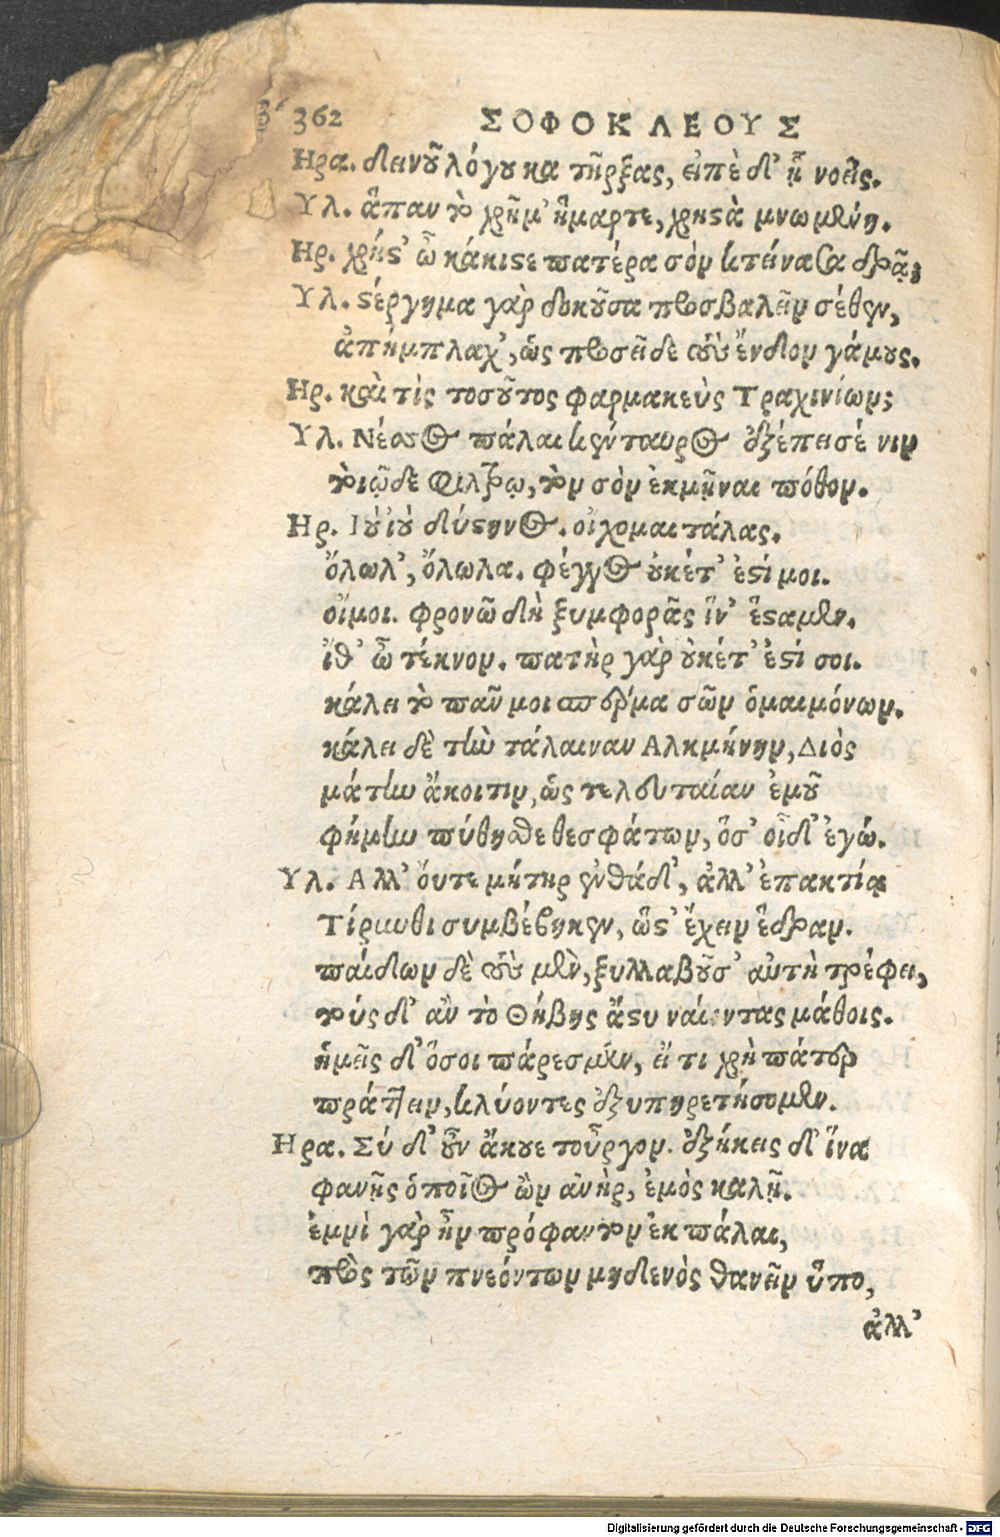 362 ΣΟΦΟΚΛΕΟΥΣ
Ηρα. δεινοῦ λόγου κατῆρξας, εἰπὲ δ' ᾗ νοεῖς.
Υλ. ἅπαν τὸ χρῆμ' ἥμαρτε, χρηστὰ μνωμένη.
Ηρ. χρήστ' ὦ κάκιστε πατέρα σὸν κτείνασα δρᾷ;
Υλ. στέργημα γὰρ δοκοῦσα προσβαλεῖν σέθεν,
ἀπήμπλαχ', ὡς προσεῖδε τοὺς ἔνδον γάμους.
Ηρ. καὶ τίς τοσοῦτος φαρμακεὺς Τραχινίων;
Υλ. Νέσσος πάλαι κένταυρος ἐξέπεισέ νιν
τοιῷδε φίλτρῳ, τὸν σὸν ἐκμῆναι πόθον.
Ηρ. Ιοὺ ἰοὺ δύστηνος. οἴχομαι τάλας.
ὄλωλ', ὄλωλα. φέγγος οὐκέτ' ἐστί μοι.
οἴμοι. φρονῶ δὴ ξυμφορᾶς ἵν' ἕσταμεν.
ἴθ' ὦ τέκνον. πατὴρ γὰρ οὐκέτ' ἐστί σοι.
κάλει τὸ πᾶν μοι σπέρμα σῶν ὁμαιμόνων.
κάλει δὲ τὴν τάλαιναν Αλκμήνην, Διὸς
μάτην ἄκοιτιν, ὡς τελευταίαν ἐμοῦ
φήμην πύθησθε θεσφάτων, ὅσ' οἶδ' ἐγώ.
Υλ. Αλλ' ὄυτε μήτηρ ἐνθάδ', ἀλλ' ἐπακτίᾳ
Τίρυνθι συμβέβηκεν, ὥστ' ἔχειν ἕδραν.
παίδων δὲ τοὺς μὲν, ξυλλαβοῦσ' αὐτὴ τρέφει,
τοὺς δ' ἂν τὸ Θήβης ἄστυ ναίοντας μάθοις.
ἡμεῖς δ' ὅσοι πάρεσμεν, εἴ τι χρὴ πάτερ
πράττειν, κλύοντες ἐξυπηρετήσομεν.
Ηρα. Σύ δ' οὖν ἄκουε τοὖργον. ἐξήκεις δ' ἵνα
φανῇς ὁποῖος ὢν ἀνὴρ, ἐμὸς καλῇ.
ἐμοὶ γὰρ ἦν πρόφαντον ἐκ πάλαι,
πρὸς τῶν πνεόντων μηδενὸς θανεῖν ὕπο,
ἀλλ'
Digitalisierung gefördert durch die Deutsche Forschungsgemeinschaft - DFG